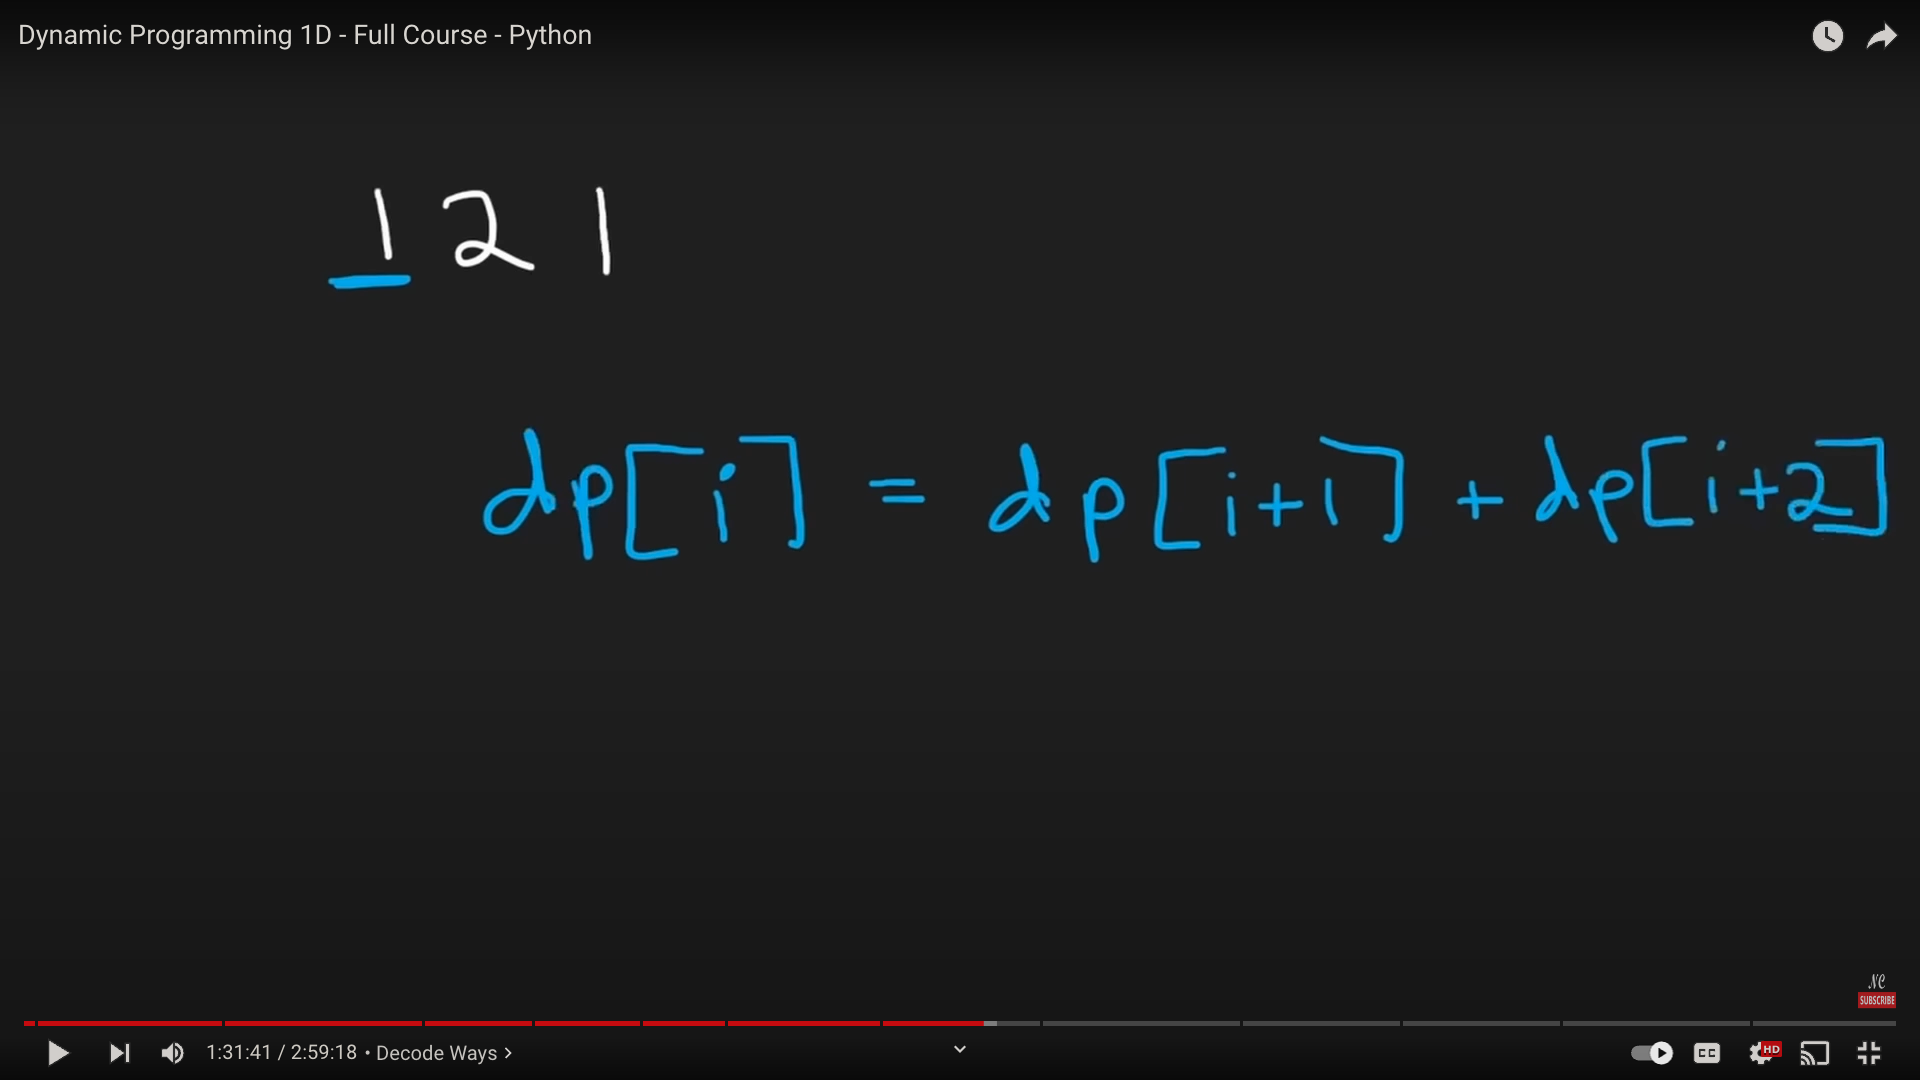 Dynamic Programming 1D - Full Course - Python
1 2 1
dp[i] = dp[i+1] + dp[i+2]
NC
SUBSCRIBE
1:31:41 / 2:59:18 • Decode Ways >
CC
HD